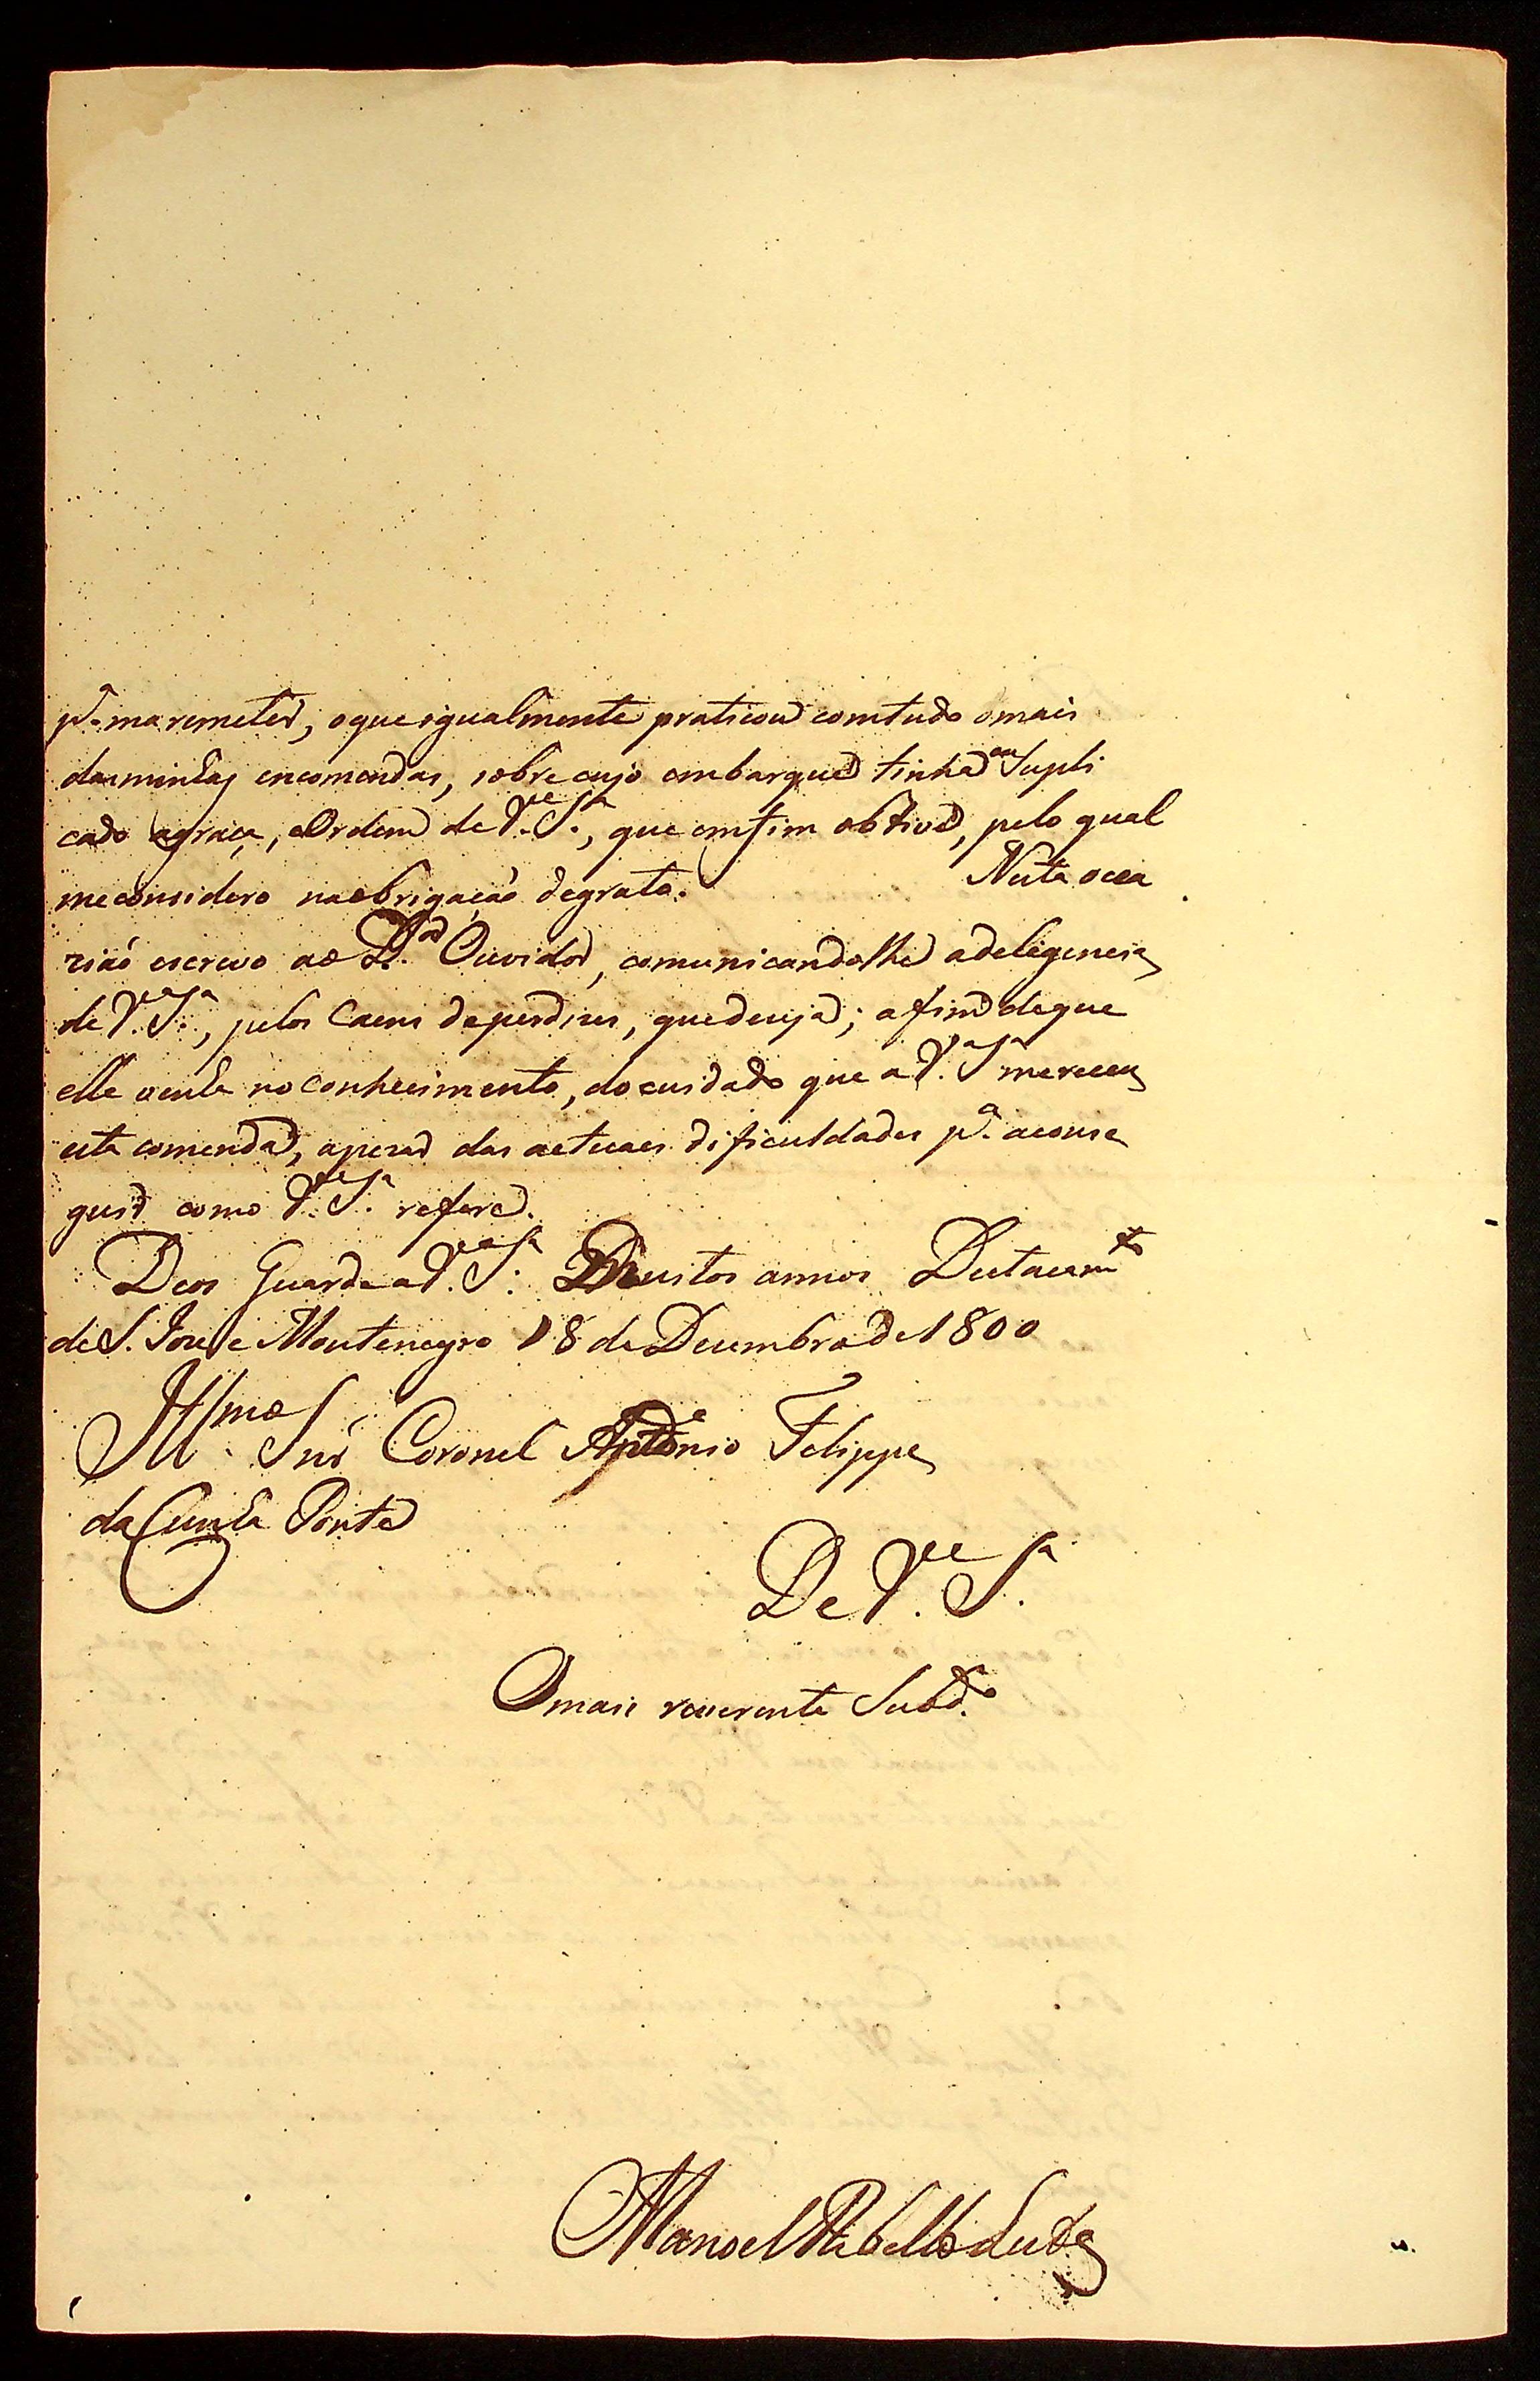 p.ª ma remeter, o que igualmente praticou com tudo o mais
das minhas encomendas, sobre cujo embarque tinha eu Supli
cado a graça, e Ordem de V.ce S.ª, que emfim obtive, pelo qual
me considero na obrigação de grato. Nesta occa
zião escrevo ao D.or Ouvidor, comunicandolhe a deligencia
de V.ce S.ª, pelos Caens de perdizes, que deseja; afim de que
elle venha no conhecimento, do cuidado que a V.ce S.ª mereceu
esta comenda, apezar das actuaes dificuldades p.ª a conse
guir como V.ce S.ª refere.
Deos Guarde a V.ce S.ª Muitos annos Destacam.to
de S. Joze e Montenegro 18 de Dezembro de 1800
Ill.mo Snr Coronel Antonio Felippe
da Cunha Ponte
De V.ce S.ª
O mais reverente Subd.º
Manoel Rebello